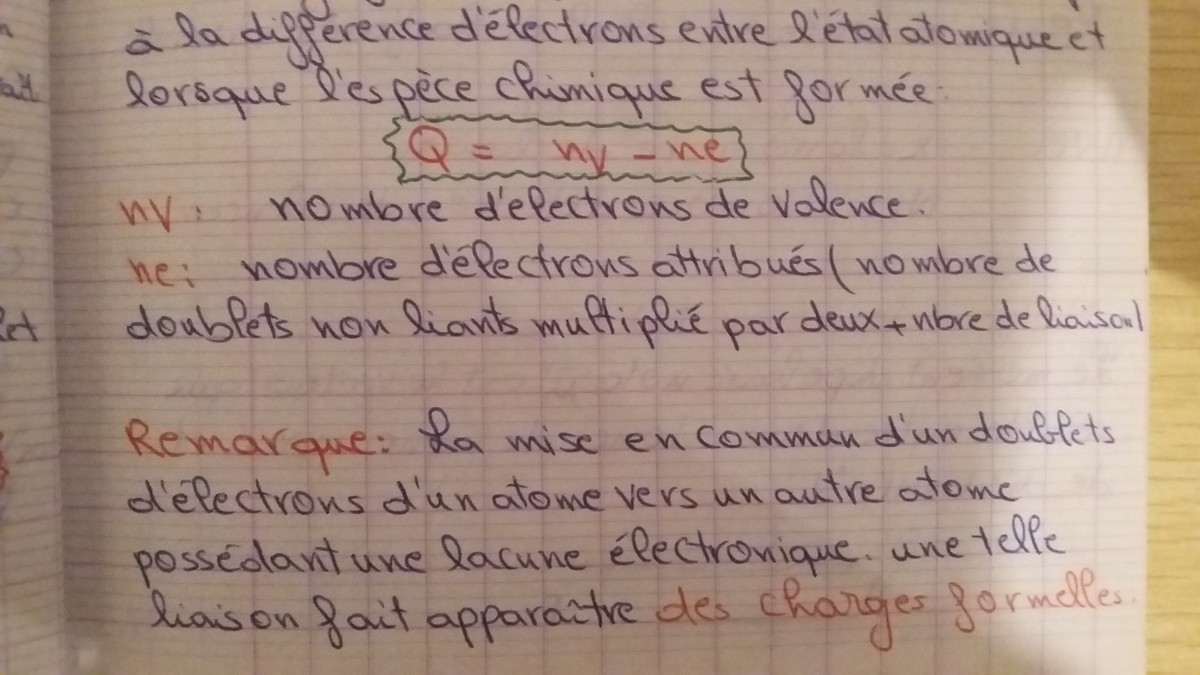 à la différence d'électrons entre l'état atomique et
lorsque l'espèce chimique est formée:
Q = nv - ne
nv: nombre d'électrons de valence.
ne: nombre d'électrons attribués (nombre de
doublets non liants multiplié par deux + nbre de liaison)
Remarque: La mise en commun d'un doublets
d'électrons d'un atome vers un autre atome
possédant une lacune électronique. une telle
liaison fait apparaître des charges formelles.